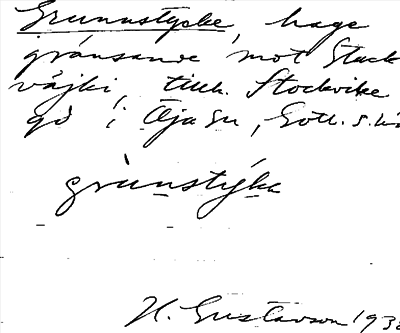 Grunnstycke, hage
gränsande mot Stuck
väjki, tillh. Stockvike
gd i Öja sn, Gotl. s. hä
grùnstýka
H. Gustavson 193